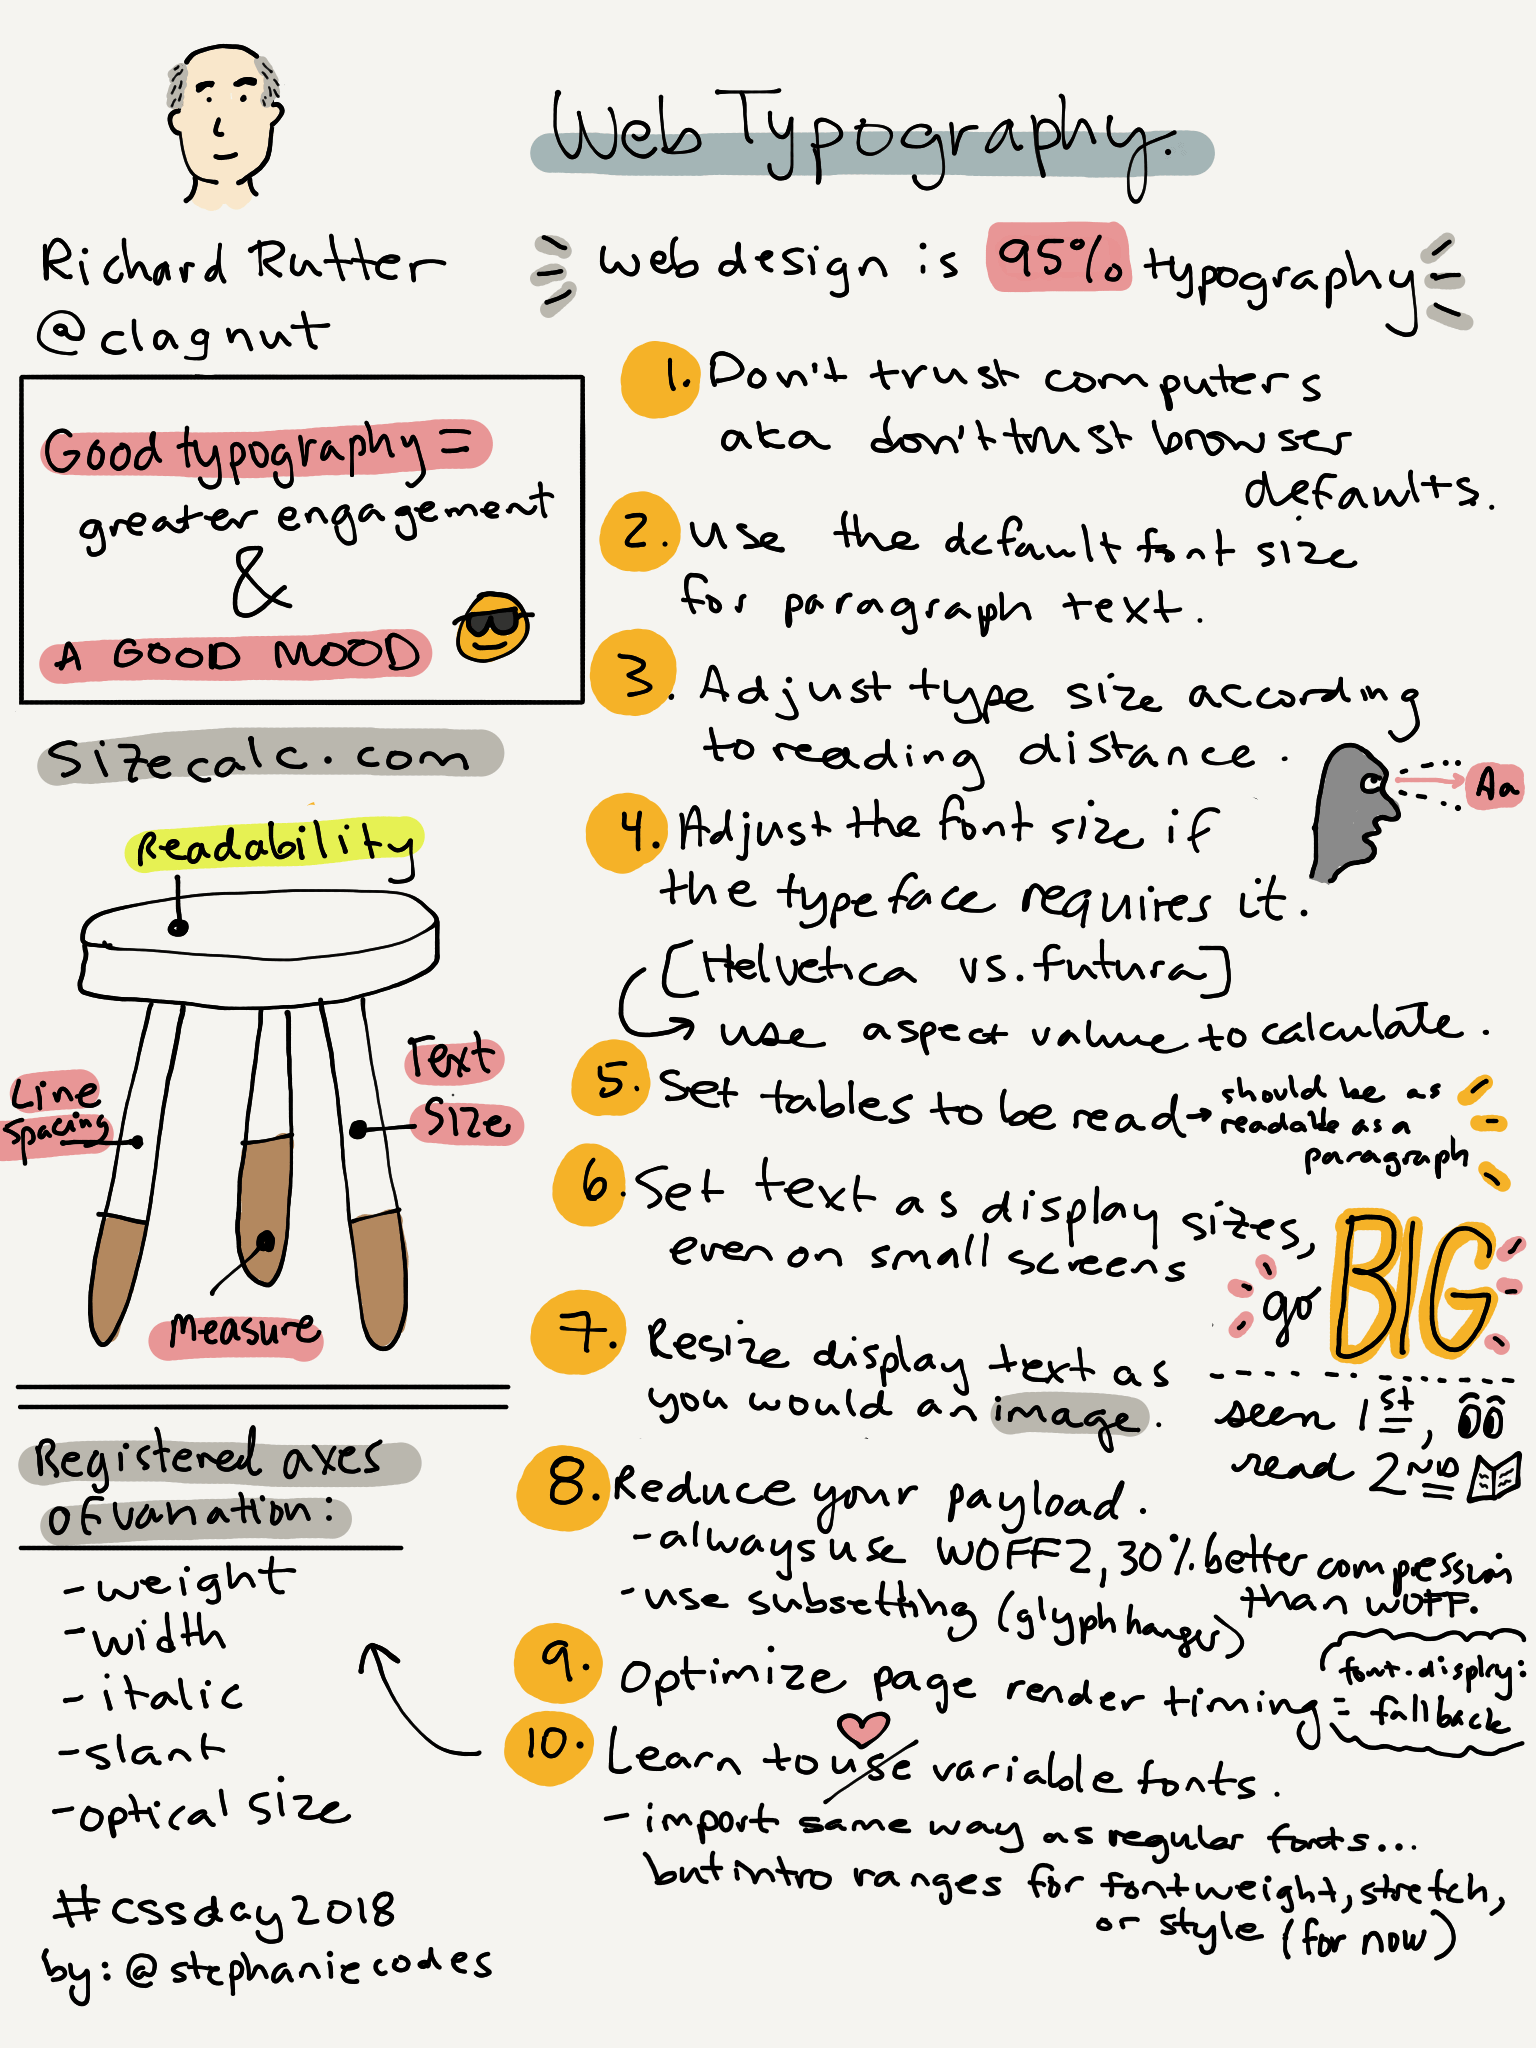 Web Typography.
Richard Rutter
@clagnut
web design is 95% typography
Good typography =
greater engagement
&
A GOOD MOOD
Sizecalc.com
Readability
Line
Spacing
Text
Size
Measure
Registered axes
of variation:
- weight
- width
- italic
- slant
- optical size
#cssday2018
by: @stephaniecodes
1. Don't trust computers
aka don't trust browser
defaults.
2. Use the default font size
for paragraph text.
3. Adjust type size according
to reading distance.
Aa
4. Adjust the font size if
the typeface requires it.
[Helvetica vs. futura]
use aspect value to calculate.
5. Set tables to be read → should be as
readable as a
paragraph
6. Set text as display sizes,
even on small screens
go BIG
7. Resize display text as
you would an image.
seen 1st,
read 2ND
8. Reduce your payload.
- always use WOFF2, 30% better compression
than WOFF.
- use subsetting (glyphhanger)
9. Optimize page render timing
font-display:
= fallback
10. Learn to use variable fonts.
- import same way as regular fonts...
but intro ranges for font weight, stretch,
or style (for now)